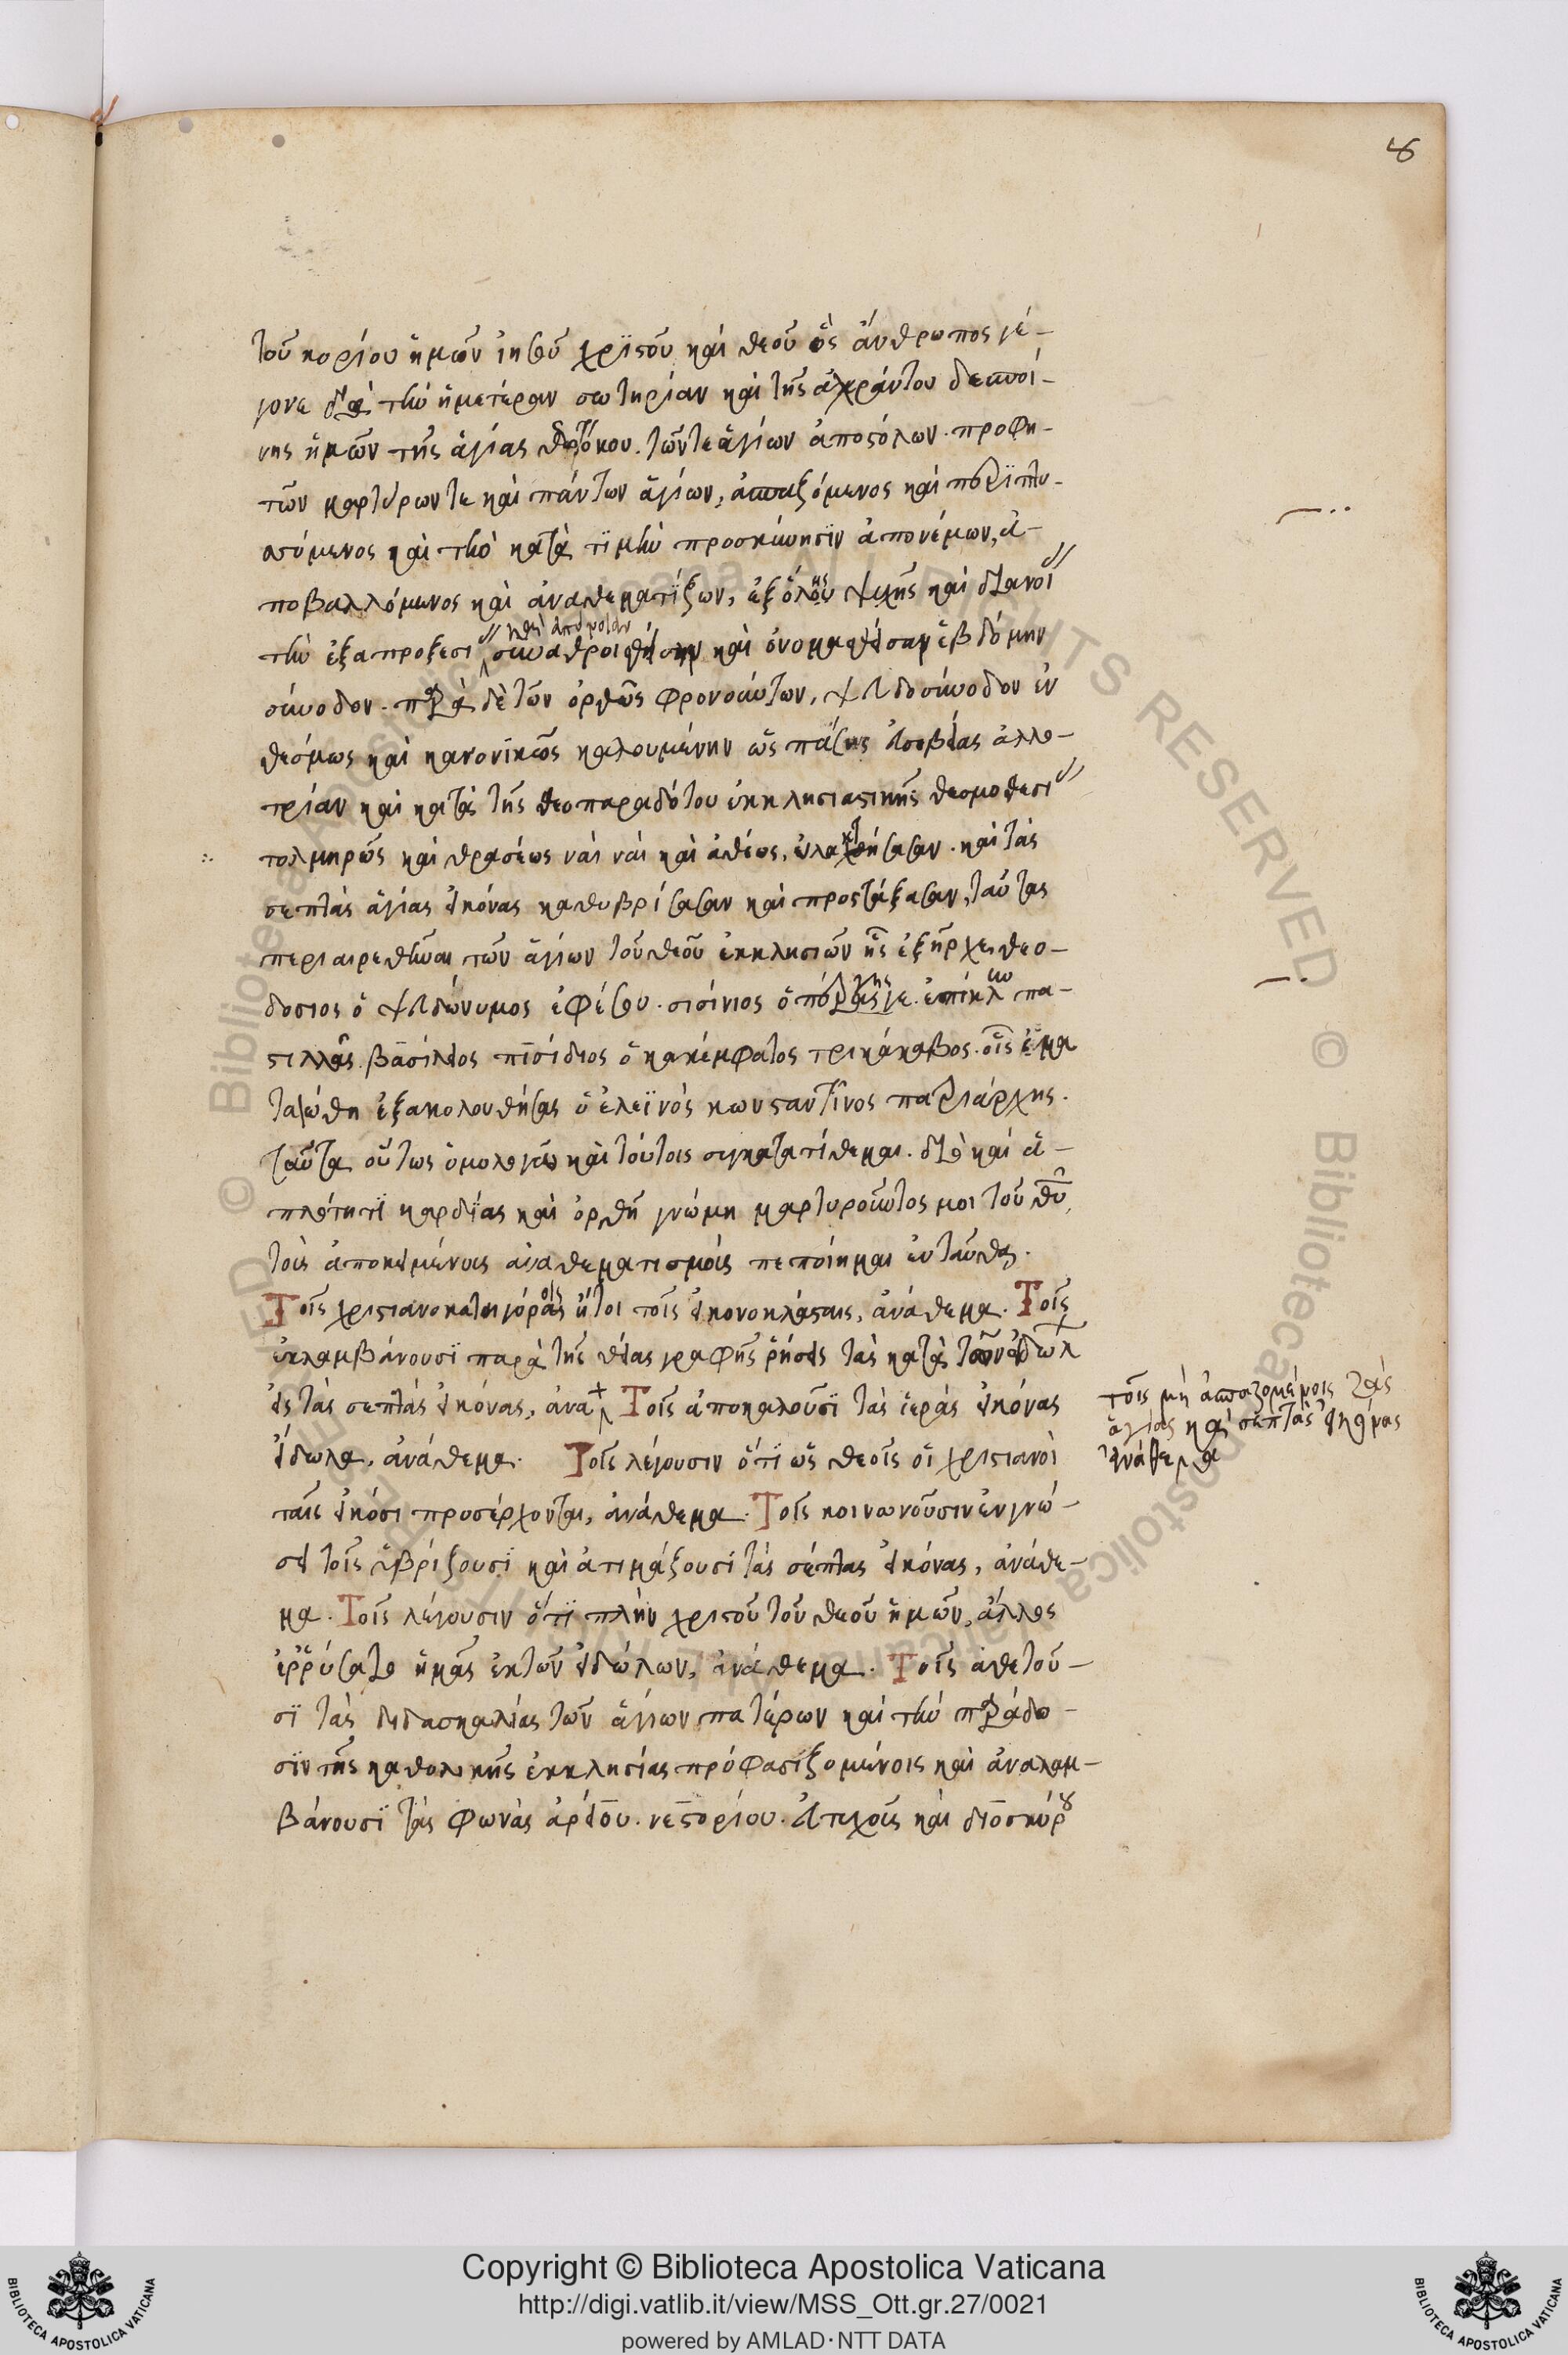 8
τοῦ κυρίου ἡμῶν ἰησοῦ χριστοῦ καὶ θεοῦ ὃς ἄνθρωπος γέ-
γονε διὰ τὴν ἡμετέραν σωτηρίαν καὶ τῆς ἀχράντου δεσποί-
νης ἡμῶν τῆς ἁγίας θεοτόκου. τῶν τε ἁγίων ἀποστόλων. προφη-
τῶν μαρτύρων τε καὶ πάντων ἁγίων, ἀσπαζόμενος καὶ περιπτυ-
σσόμενος καὶ τὴν κατὰ τιμὴν προσκύνησιν ἀπονέμων, ἀ-
ποβαλλόμενος καὶ ἀναθεματίζων, ἐξ ὅλης ψυχῆς καὶ διανοί
καὶ ἀπόνοιαν
τὴν ἐξ ἀπροξεσι συναθροισθῆσαν καὶ ὀνομασθεῖσαν ἑβδόμην
σύνοδον. παρὰ δὲ τῶν ὀρθῶς φρονούντων, ψευδοσύνοδον ἐν
θέσμως καὶ κανονικῶς καλουμένην ὡς πάσης εὐσεβείας ἀλλο-
τρίαν καὶ κατὰ τῆς θεοπαραδότου ἐκκλησιαστικῆς θεσμοθεσί
τολμηρῶς καὶ θρασέως ναὶ ναὶ καὶ ἀθέως, ὑλακτήσασαν. καὶ τὰς
σεπτὰς ἁγίας εἰκόνας καθυβρίσασαν καὶ προστάξασαν, ταύτας
περιαιρεθῆναι τῶν ἁγίων τοῦ θεοῦ ἐκκλησιῶν ἧς ἐξῆρχε θεο-
δόσιος ὁ ψευδώνυμος ἐφέσου. σισίνιος ὁ πέργης ἐπίκλην πα-
στιλλᾶς. βασίλειος πισίδιος ὁ κακέμφατος τρικάκαβος. οἷς ἐμα
ταιώθη ἐξακολουθήσας ὁ ἐλεϊνὸς κωνσταντῖνος πατριάρχης.
ταῦτα οὕτως ὁμολογῶ καὶ τούτοις συγκατατίθεμαι. διὸ καὶ ἁ-
πλότητι καρδίας καὶ ὀρθῆ γνώμη μαρτυροῦντος μοι τοῦ θυ,
τοῖς ὑποκειμένοις ἀναθεματισμοῖς πεποίημαι ἐνταῦθα.
Τοῖς χριστιανοκατηγόροις ἤτοι τοῖς εἰκονοκλάσταις, ἀνάθεμα. Τοῖς
ἐκλαμβάνουσι παρὰ τῆς θείας γραφῆς ῥήσεις τὰς κατὰ τῶν εἰδώλ
εἰς τὰς σεπτὰς εἰκόνας, ἀνα Τοῖς ἀποκαλοῦσι τὰς ἱερὰς εἰκόνας
εἴδωλα, ἀνάθεμα. Τοῖς λέγουσιν ὅτι ὡς θεοῖς οἱ χριστιανοὶ
ταῖς εἰκόσι προσέρχονται, ἀνάθεμα. Τοῖς κοινωνοῦσιν ἐν γνώ-
σει τοῖς ὑβρίζουσι καὶ ἀτιμάζουσι τὰς σέπτας εἰκόνας, ἀνάθε-
μα. Τοῖς λέγουσιν ὅτι πλὴν χριστοῦ τοῦ θεοῦ ἡμῶν, ἄλλος
ἐρρύσατο ἡμᾶς ἐκ τῶν εἰδώλων, ἀνάθεμα. Τοῖς ἀθετοῦ-
σι τὰς διδασκαλίας τῶν ἁγίων πατέρων καὶ τὴν παράδο-
σιν τῆς καθολικῆς ἐκκλησίας πρόφασιζομένοις καὶ ἀναλαμ-
βάνουσι τὰς φωνὰς ἀρείου. νεστορίου. εὐτυχοῦς καὶ διοσκόρου
τοῖς μὴ ἀσπαζομένοις τὰς
ἁγίας καὶ σεπτὰς εἰκόνας
ἀνάθεμα
Copyright © Biblioteca Apostolica Vaticana
http://digi.vatlib.it/view/MSS_Ott.gr.27/0021
powered by AMLAD·NTT DATA
BIBLIOTECA APOSTOLICA VATICANA
BIBLIOTECA APOSTOLICA VATICANA